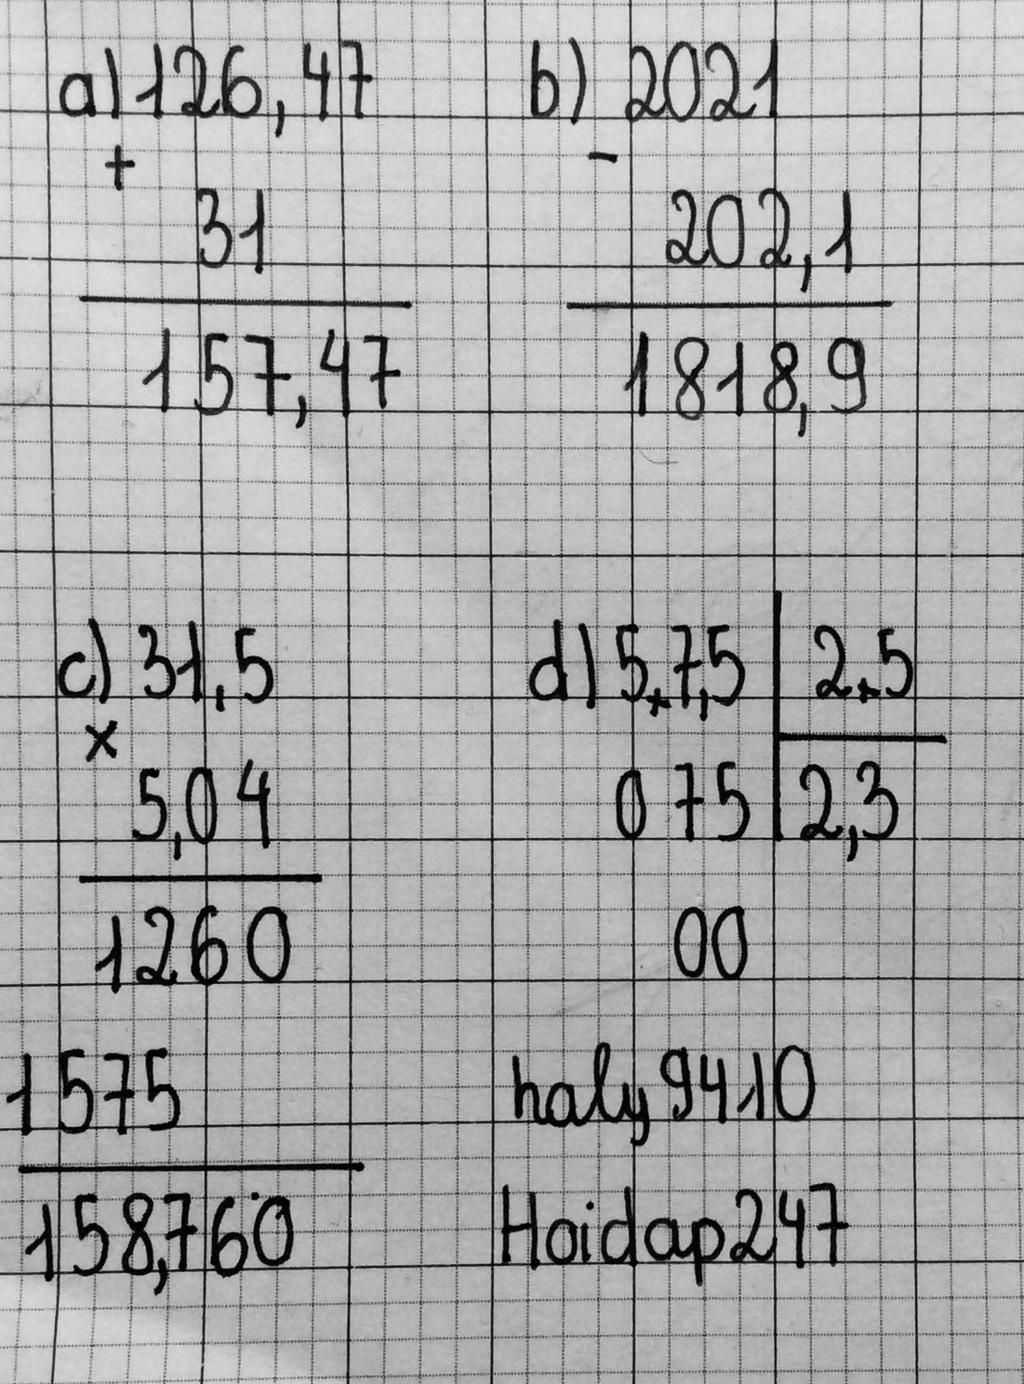 a) 126,47
+
31
157,47
b) 2021
-
202,1
1818,9
c) 31,5
x
5,04
1260
1575
158,760
d) 5,7,5 | 2,5
075 | 2,3
00
haly9410
Hoidap247